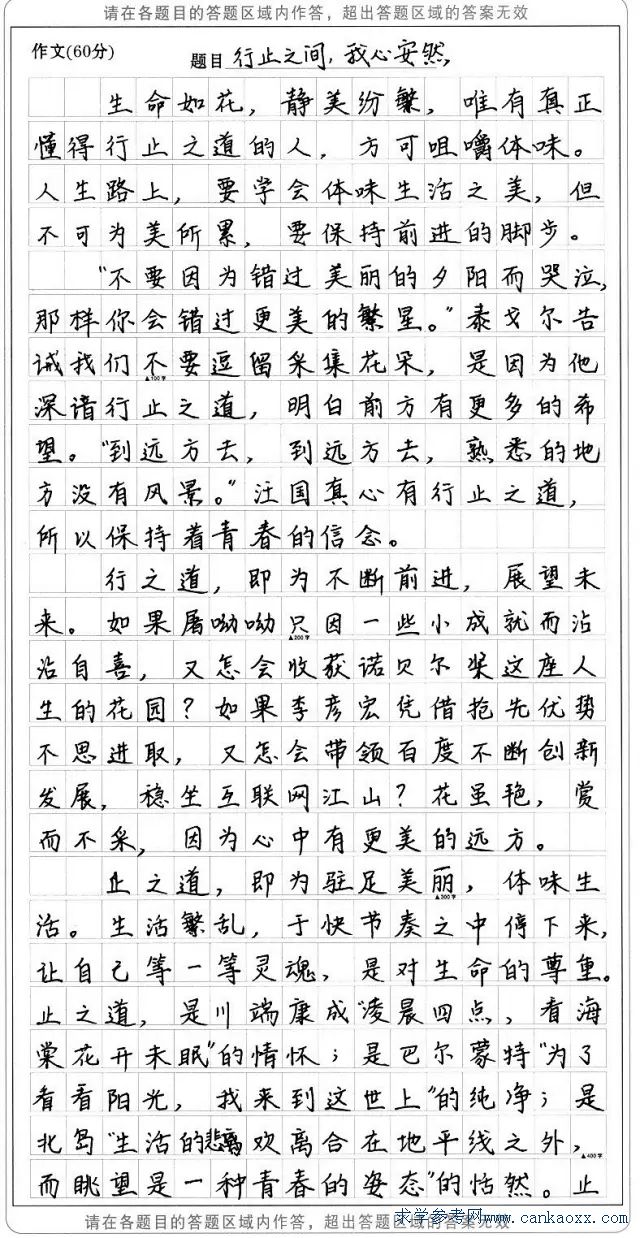 请在各题目的答题区域内作答，超出答题区域的答案无效
作文(60分)
题目 行止之间,我心安然
生命如花，静美纷繁，唯有真正
懂得行止之道的人，方可咀嚼体味。
人生路上，要学会体味生活之美，但
不可为美所累，要保持前进的脚步。
“不要因为错过美丽的夕阳而哭泣，
那样你会错过更美的繁星。”泰戈尔告
诫我们不要逗留采集花朵，是因为他
▲100字
深谙行止之道，明白前方有更多的希
望。“到远方去，到远方去，熟悉的地
方没有风景。”汪国真心有行止之道，
所以保持着青春的信念。
行之道，即为不断前进，展望未
来。如果屠呦呦只因一些小成就而沾
▲200字
沾自喜，又怎会收获诺贝尔奖这座人
生的花园？如果李彦宏凭借抢先优势
不思进取，又怎会带领百度不断创新
发展，稳坐互联网江山？花虽艳，赏
而不采，因为心中有更美的远方。
止之道，即为驻足美丽，体味生
▲300字
活。生活繁乱，于快节奏之中停下来，
让自己等一等灵魂，是对生命的尊重。
止之道，是川端康成“凌晨四点，看海
棠花开未眠”的情怀；是巴尔蒙特“为了
看看阳光，我来到这世上”的纯净；是
北岛“生活的悲离欢离合在地平线之外，
▲400字
而眺望是一种青春的姿态”的恬然。止
请在各题目的答题区域内作答，超出答题区域的答案无效
求学参考网www.cankaoxx.com